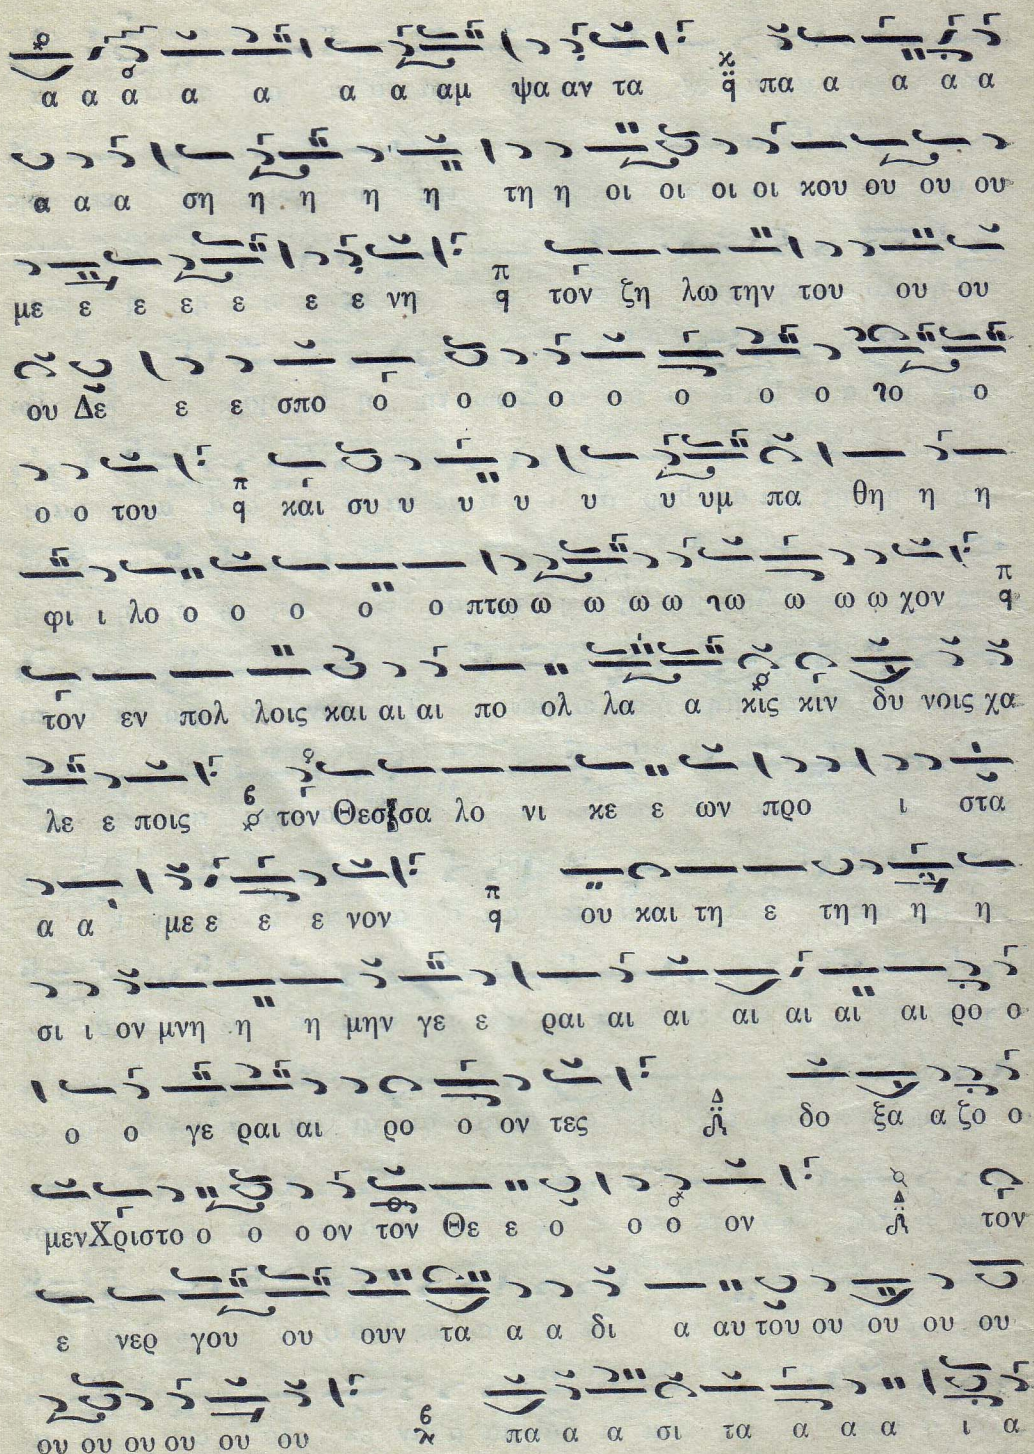 α α α α α α α αμ ψα αν τα πα α α α α
α α α ση η η η η τη η οι οι οι οι κου ου ου ου
με ε ε ε ε ε ε νη τον ζη λω την του ου ου
ου Δε ε ε σπο ο ο ο ο ο ο ο ο ο ο
ο ο του και συ υ υ υ υ υ υμ πα θη η η
φι ι λο ο ο ο ο ο πτω ω ω ω ω ω ω ω ω χον
τον εν πολ λοις και αι αι πο ολ λα α κις κιν δυ νοις χα
λε ε ποις τον Θεσ σα λο νι κε ε ων προ ι στα
α α με ε ε ε νον ου και τη ε τη η η η
σι ι ον μνη η η μην γε ε ραι αι αι αι αι αι αι ρο ο
ο ο γε ραι αι ρο ο ον τες δο ξα α ζο ο
μεν Χριστο ο ο ο ον τον Θε ε ο ο ο ον τον
ε νερ γου ου ουν τα α α δι α αυ του ου ου ου ου
ου ου ου ου ου ου πα α α σι τα α α α ι α